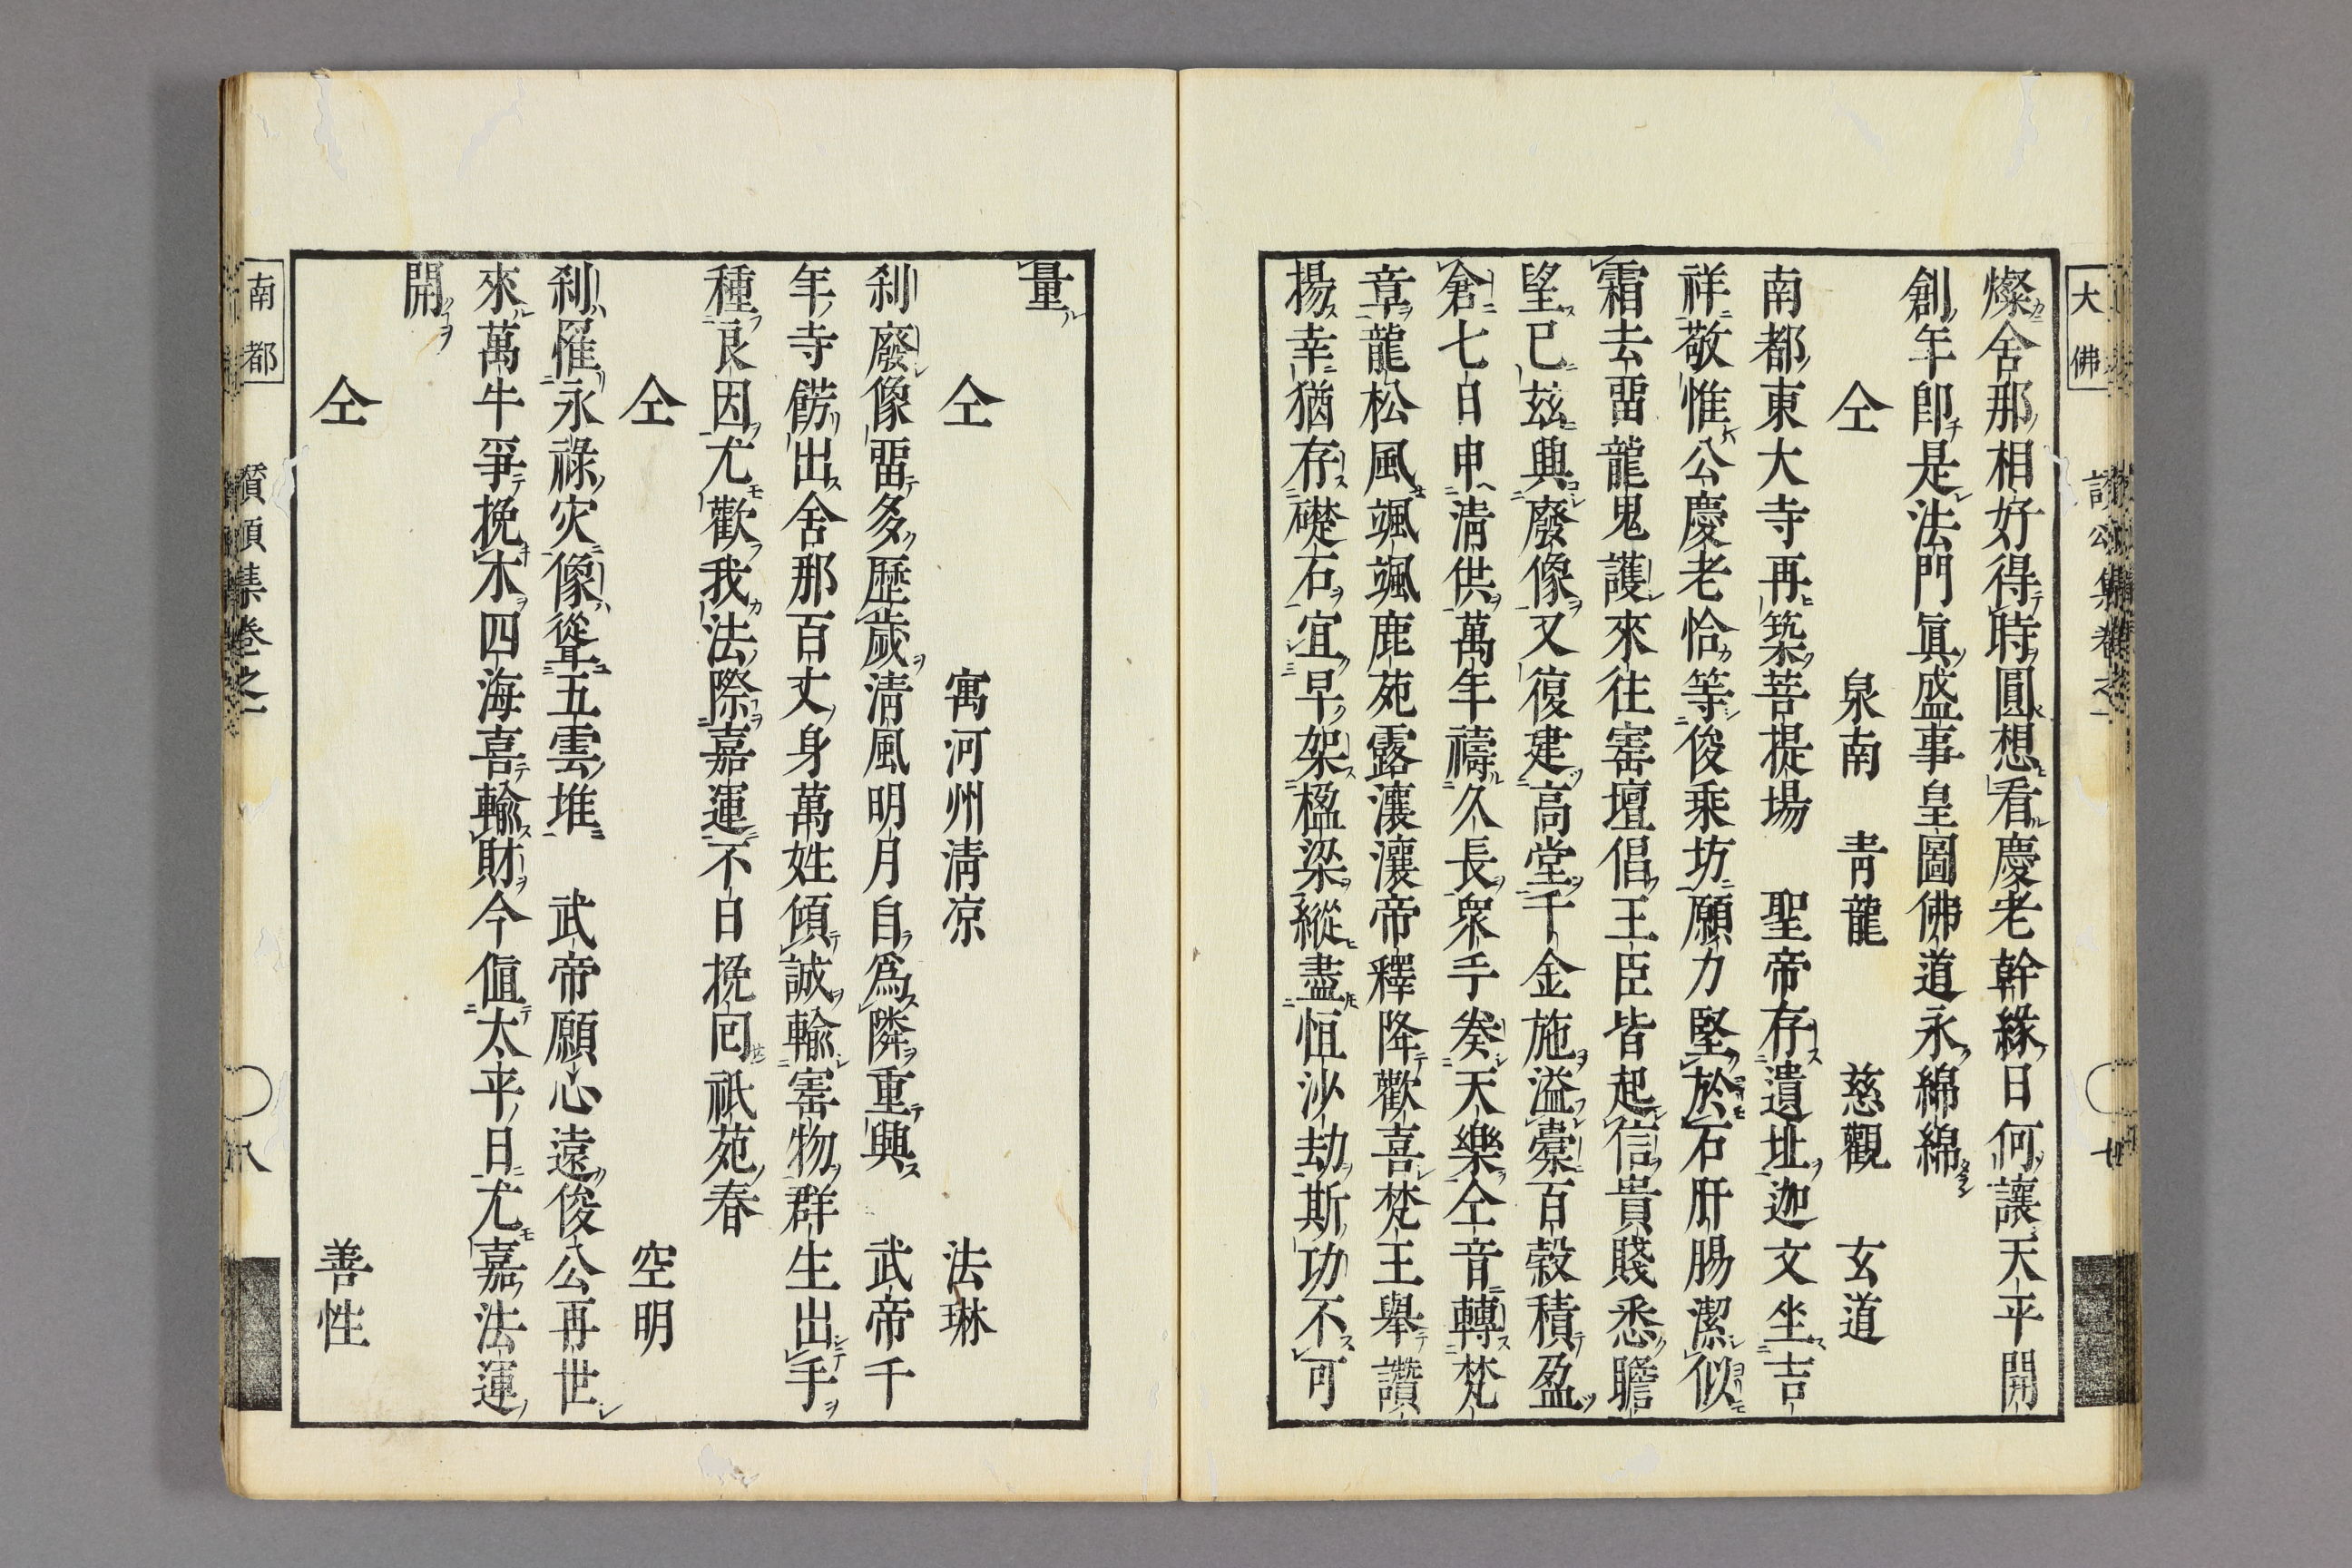 大佛
燦舍那相好得時圓想看慶老幹緣日何讓天平開
創年卽是法門眞盛事皇圖佛道永綿綿
仝 泉南 靑龍 慈觀 玄道
南都東大寺再築菩提場 聖帝存遺址迦文坐吉
祥敬惟公慶老恰等俊乘坊願力堅於石肝腸潔似
霜去畱龍鬼護來往宰壇倡王臣皆起信貴賤悉瞻
望已玆興廢像又復建高堂千金施溢橐百穀積盈
倉七日申淸供萬年禱久長衆手奏天樂仝音轉梵
章龍松風颯颯鹿苑露瀼瀼帝釋降歡喜梵王舉讚
揚幸猶存礎石宜早架楹梁縱盡恒沙劫斯功不可
量
仝 寓河州淸凉 法琳
刹廢像畱多歷歲淸風明月自爲隣重興 武帝千
年寺餝出舍那百丈身萬姓傾誠輸寶物群生出手
種良因尤歡我法際嘉運不日挽囘祇苑春
仝 空明
刹罹永祿灾像聳五雲堆 武帝願心遠俊公再世
來萬牛爭挽木四海喜輸財今値太平日尤嘉法運
開
仝 善性
南都
贊頌集卷之一
八